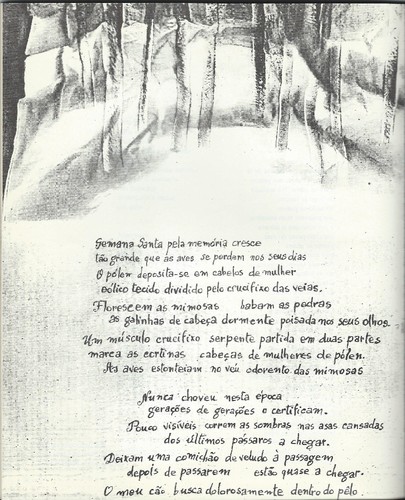 Semana Santa pela memória cresce
tão grande que as aves se perdem nos seus dias
O pólen deposita-se em cabelos de mulher
eólico tecido dividido pelo crucifixo das veias.
Florescem as mimosas babam as pedras
as galinhas de cabeça dormente poisada nos seus olhos.
Um músculo crucifixo serpente partida em duas partes
marca as cortinas cabeças de mulheres de pólen.
As aves estonteiam no véu odorento das mimosas
Nunca choveu nesta época
gerações de gerações o certificam.
Pouco visíveis correm as sombras nas asas cansadas
dos últimos pássaros a chegar.
Deixam uma comichão de veludo à passagem
depois de passarem estão quase a chegar.
O meu cão busca dolorosamente dentro do pêlo.